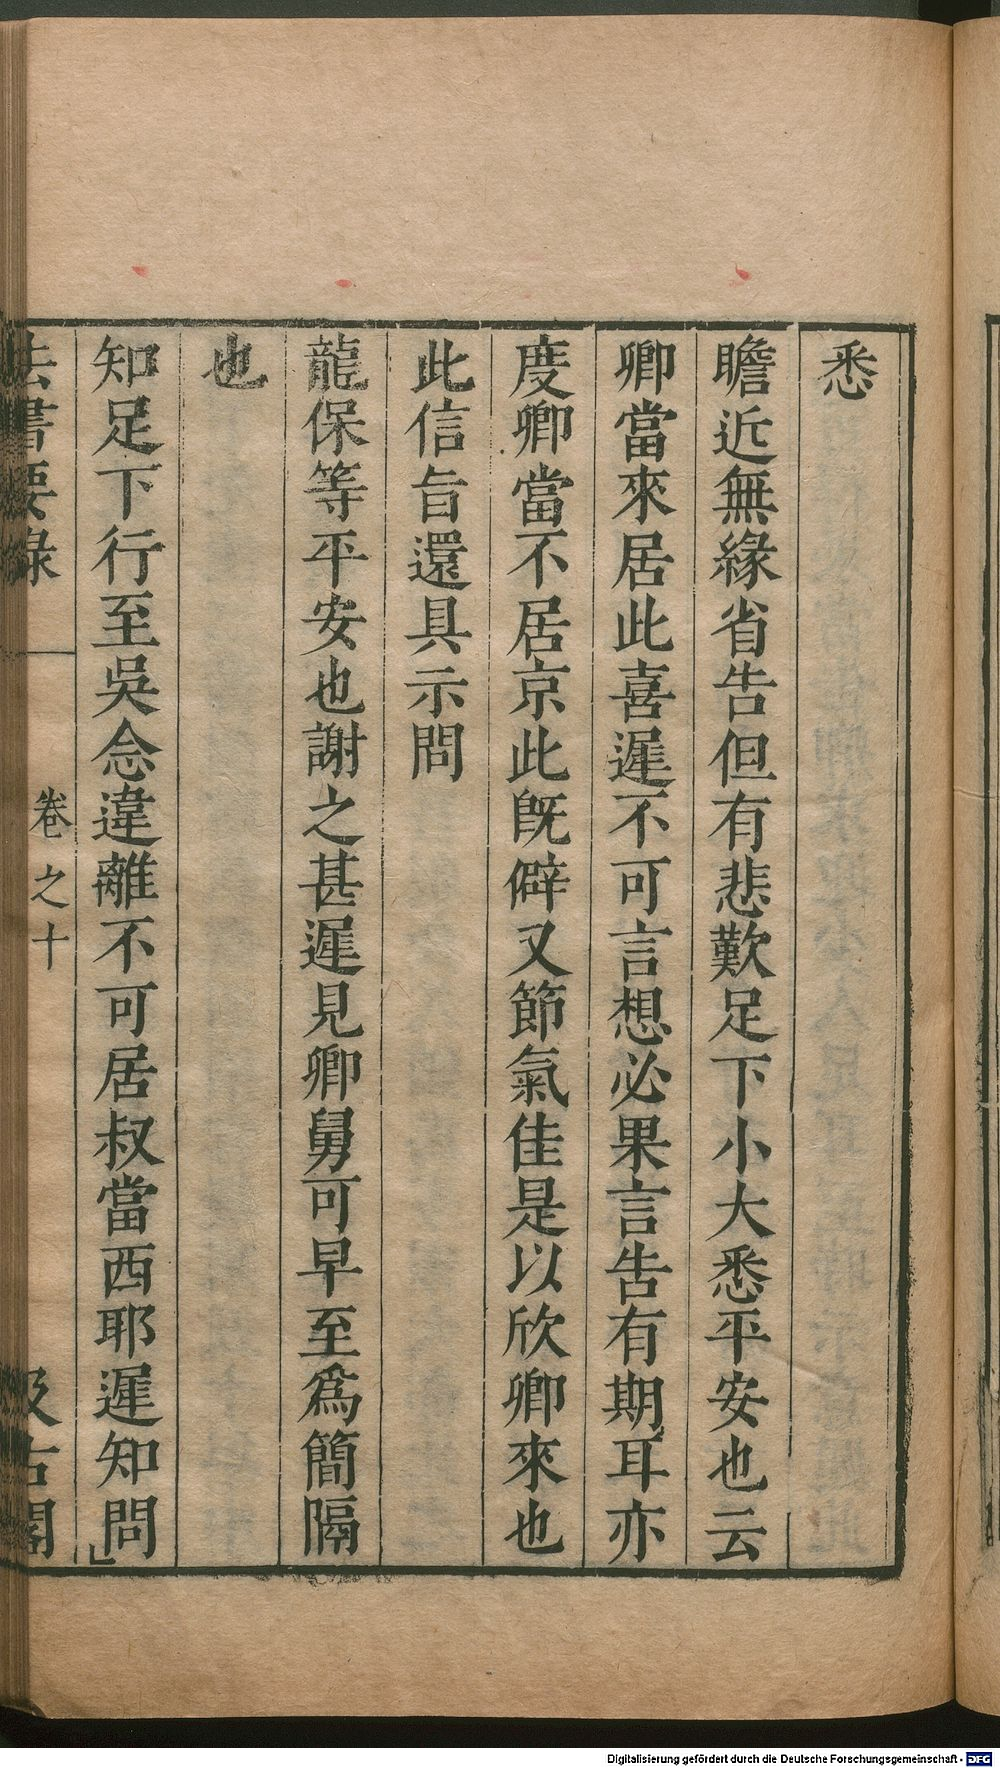 悉
瞻近無緣省告但有悲歎足下小大悉平安也云
卿當來居此喜遲不可言想必果言告有期耳亦
度卿當不居京此既僻又節氣佳是以欣卿來也
此信旨還具示問
龍保等平安也謝之甚遲見卿舅可早至爲簡隔
也
知足下行至吳念違離不可居叔當西耶遲知問
法書要錄
卷之十
汲古閣
Digitalisierung gefördert durch die Deutsche Forschungsgemeinschaft - DFG